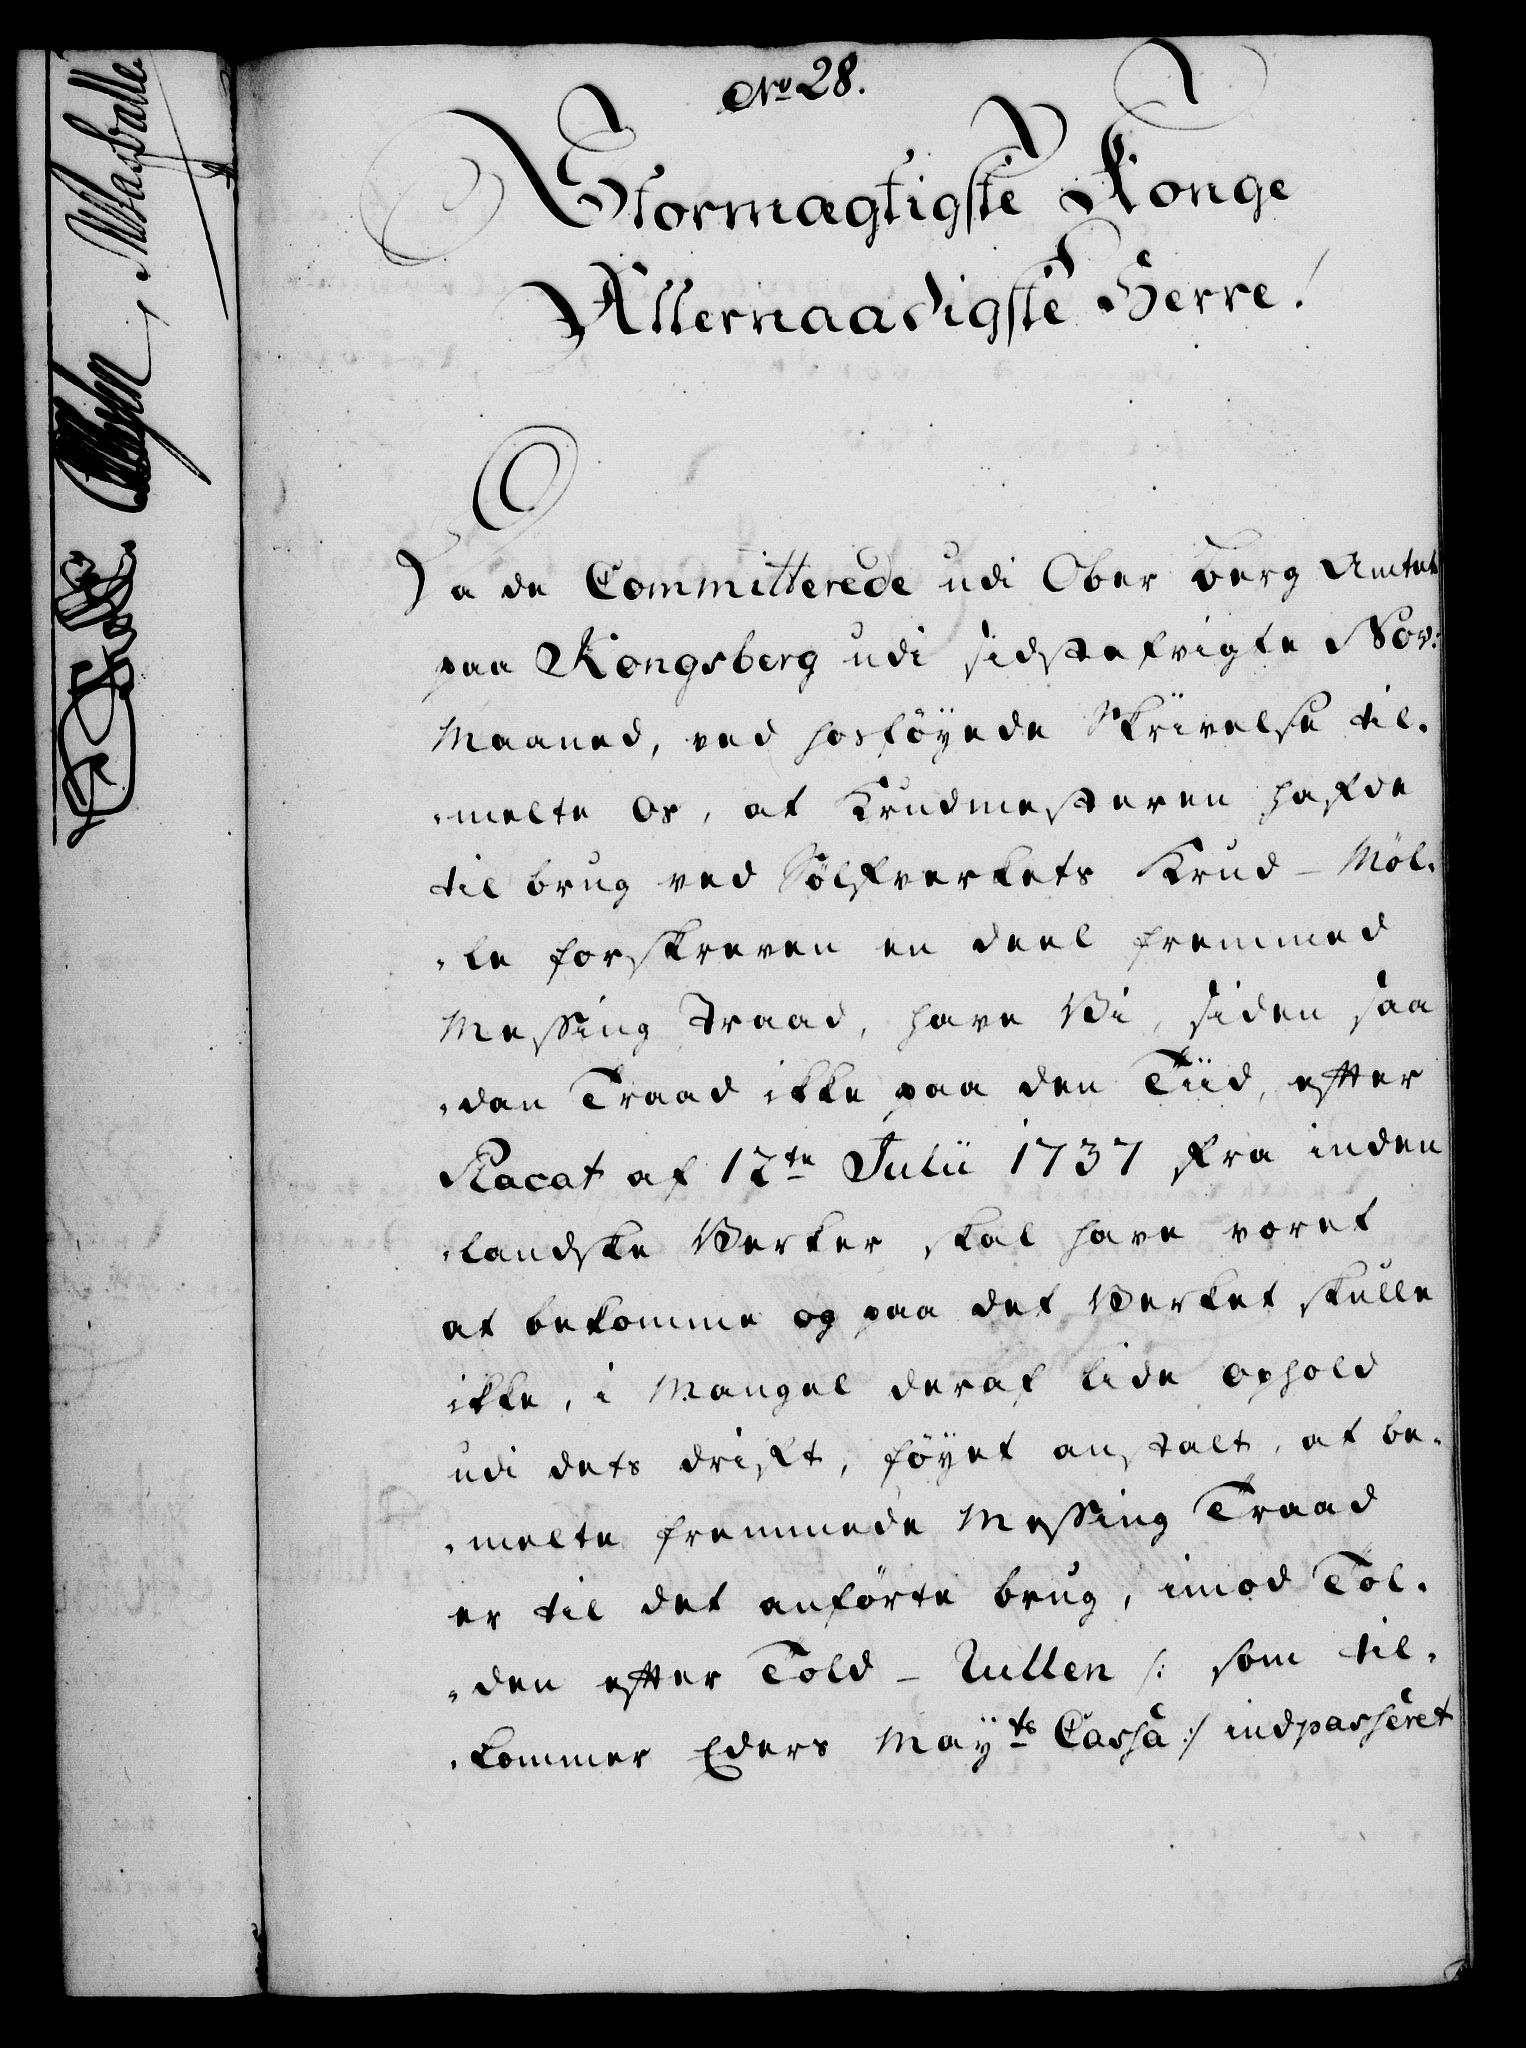 No 28.
Stormægtigste Konge
Allernaadigste Herre!
Da de Committerede udi Ober Berg Amtet
paa Kongsberg udi sidstafvigte Nov:
Maaned, ved hosföyede Skrivelse til-
-melte os, at Krudmesteren hafde
til brug ved Sölfverkets Krud-Möl-
-le forskreven en deel fremmed
Messing Traad, have Vi, siden saa
-dan Traad ikke paa den Tiid, efter
Placat af 12te Julii 1737 fra inden
-landske Verker skal have voret
at bekomme og paa det Verket skulle
ikke, i Mangel deraf lide ophold
udi dets drift, föyet anstalt, at be-
-melte fremmede Messing Traad
er til det anförte brug, imod Tol-
-den efter Told-Rullen /: som til-
-kommer Eders Mayts Cassa :/ indpasseret